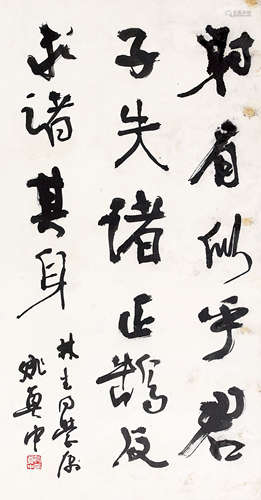 射有似乎君
子失诸正鹄反
求诸其身
林生同学属
姚奠中